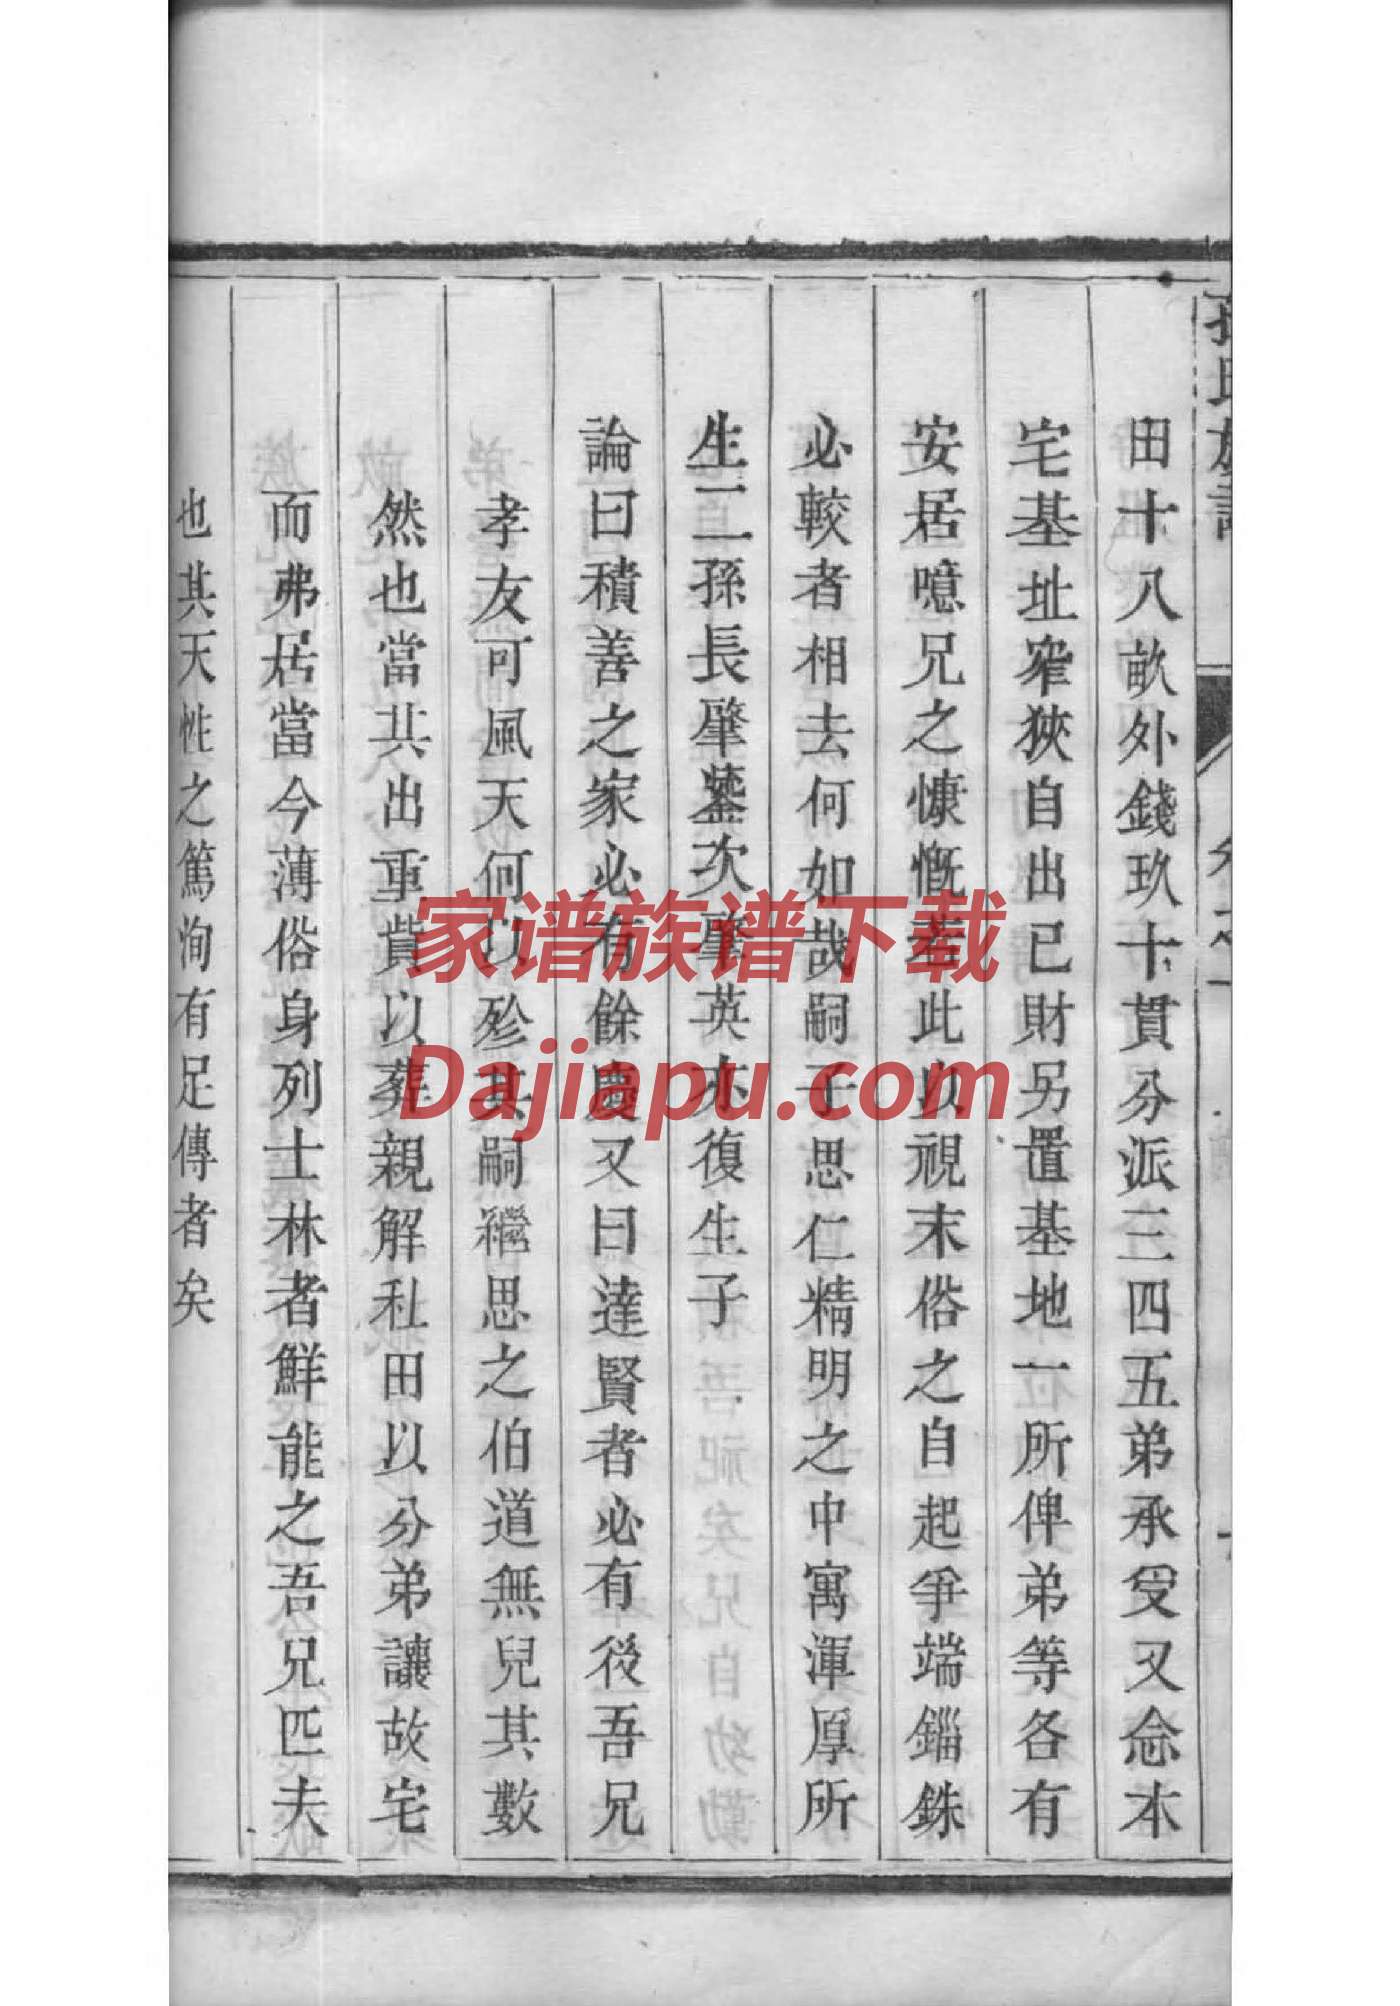 孫氏族譜 卷之一
田十八畝外錢玖十貫分派三四五弟承受又念本
宅基址窄狹自出已財另置基地一所俾弟等各有
安居噫兄之慷慨孝此以視末俗之自起爭端錙銖
必較者相去何如哉嗣子思仁精明之中寓渾厚所
生二孫長肇鎣次肇英亦復生子
論曰積善之家必有餘慶又曰達賢者必有後吾兄
孝友可風天何以殄其嗣繼思之伯道無兒其數
然也當其出重貲以葬親解私田以分弟讓故宅
而弗居當今薄俗身列士林者鮮能之吾兄匹夫
也其天性之篤洵有足傳者矣
家谱族谱下载
Dajiapu.com